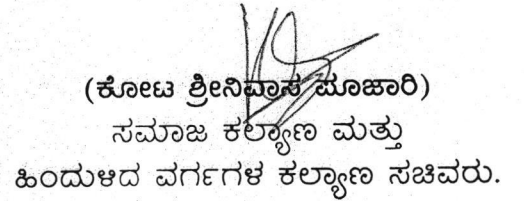 (ಕೋಟ ಶ್ರೀನಿವಾಸ ಪೂಜಾರಿ)
ಸಮಾಜ ಕಲ್ಯಾಣ ಮತ್ತು
ಹಿಂದುಳಿದ ವರ್ಗಗಳ ಕಲ್ಯಾಣ ಸಚಿವರು.